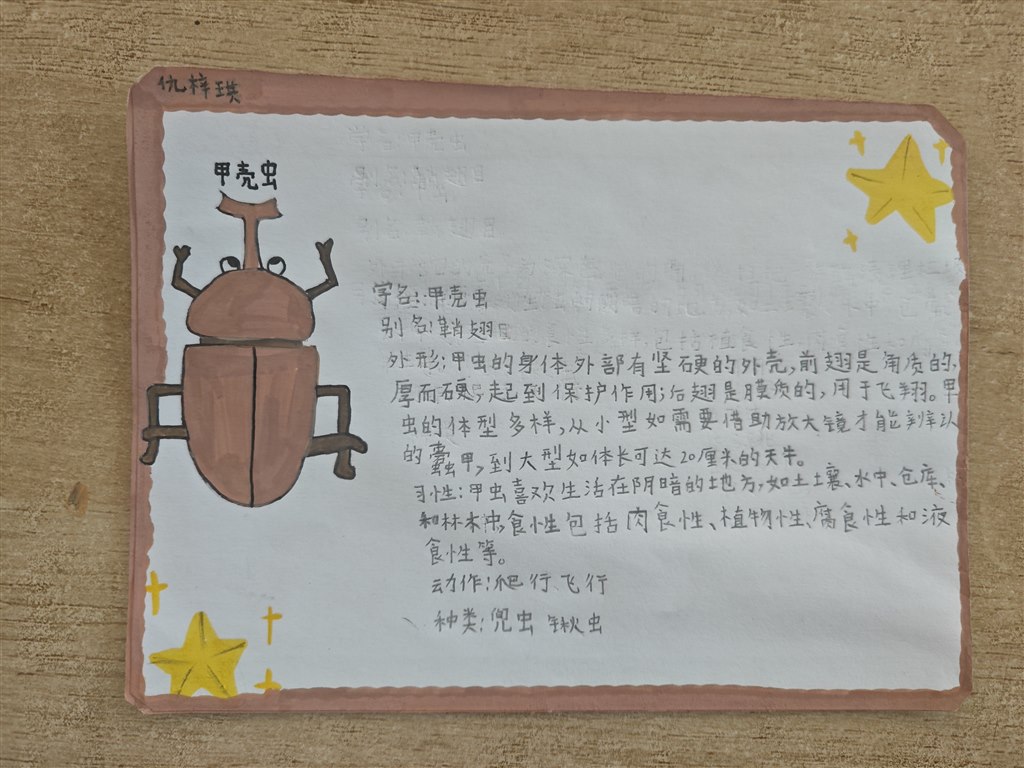 仇梓珙
甲壳虫
字名:甲壳虫
别名:鞘翅目
外形:甲虫的身体外部有坚硬的外壳,前翅是角质的,
厚而硬,起到保护作用;后翅是膜质的,用于飞翔。甲
虫的体型多样,从小型如需要借助放大镜才能辨认
的蠹甲,到大型如体长可达20厘米的天牛。
习性:甲虫喜欢生活在阴暗的地方,如土壤、水中、仓库、
和林木虫,食性包括肉食性、植物性、腐食性和液
食性等。
动作:爬行飞行
种类:兜虫 锹虫